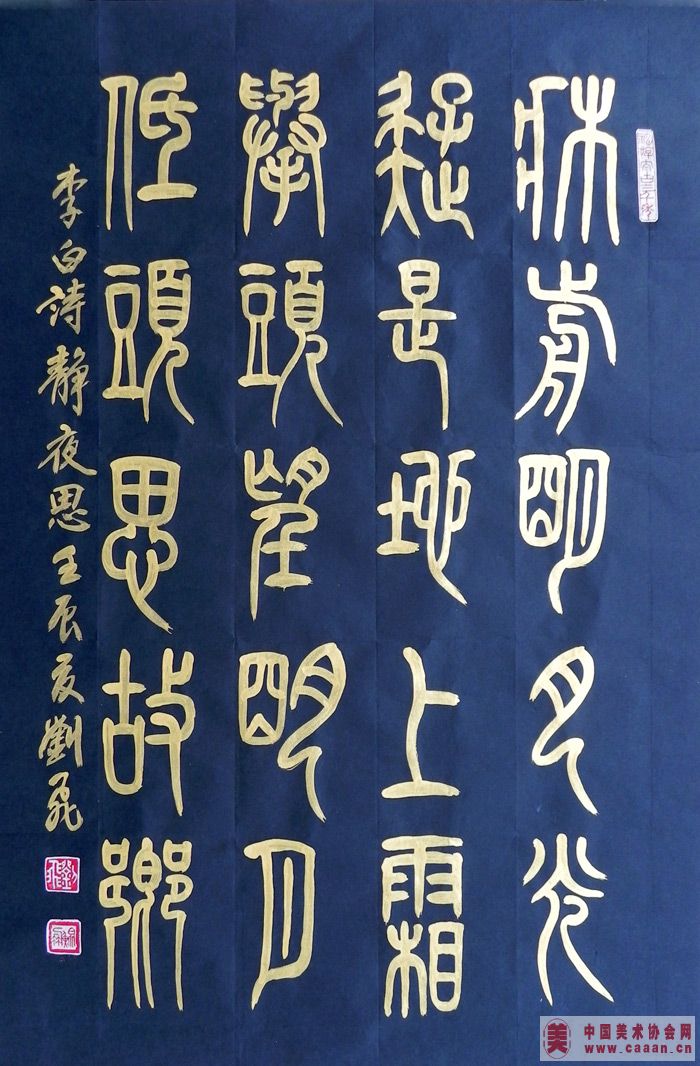 牀前明月光
疑是地上霜
舉頭望明月
低頭思故鄉
李白詩靜夜思壬辰夏劉飛
中国美术协会网
www.caaan.cn